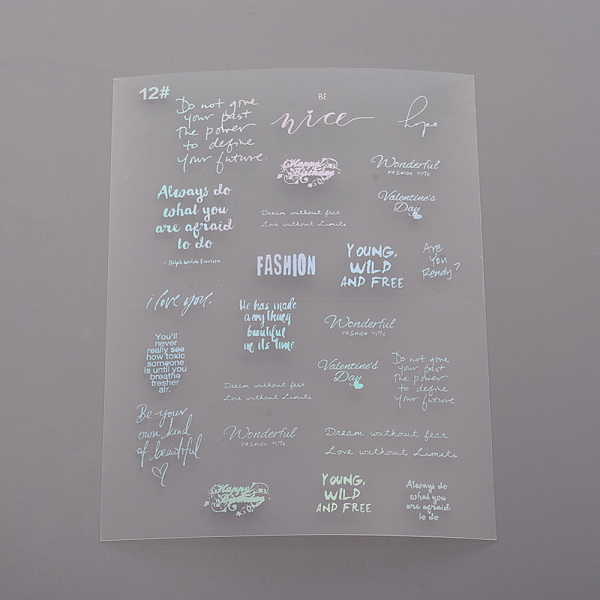 12#
Do not give
your past
the power
to define
your future.
BE
nice
hope
Happy
Birthday
Wonderful
FASHION TITLE
Always do
what you
are afraid
to do
- Ralph Waldo Emerson
Valentine's
Day
Dream without fear
Love without Limits
FASHION
YOUNG,
WILD
AND FREE
Are
you
Ready?
i love you.
He has made
anything
beautiful
in its time
Wonderful
FASHION TITLE
You'll
never
really see
how toxic
someone
is until you
breathe
fresher
air.
Valentine's
Day
Do not give
your past
the power
to define
your future
Dream without fear
Love without Limits
Be your
own kind
of beautiful
Wonderful
FASHION TITLE
Dream without fear
Love without Limits
Happy
Birthday
YOUNG,
WILD
AND FREE
Always do
what you
are afraid
to do